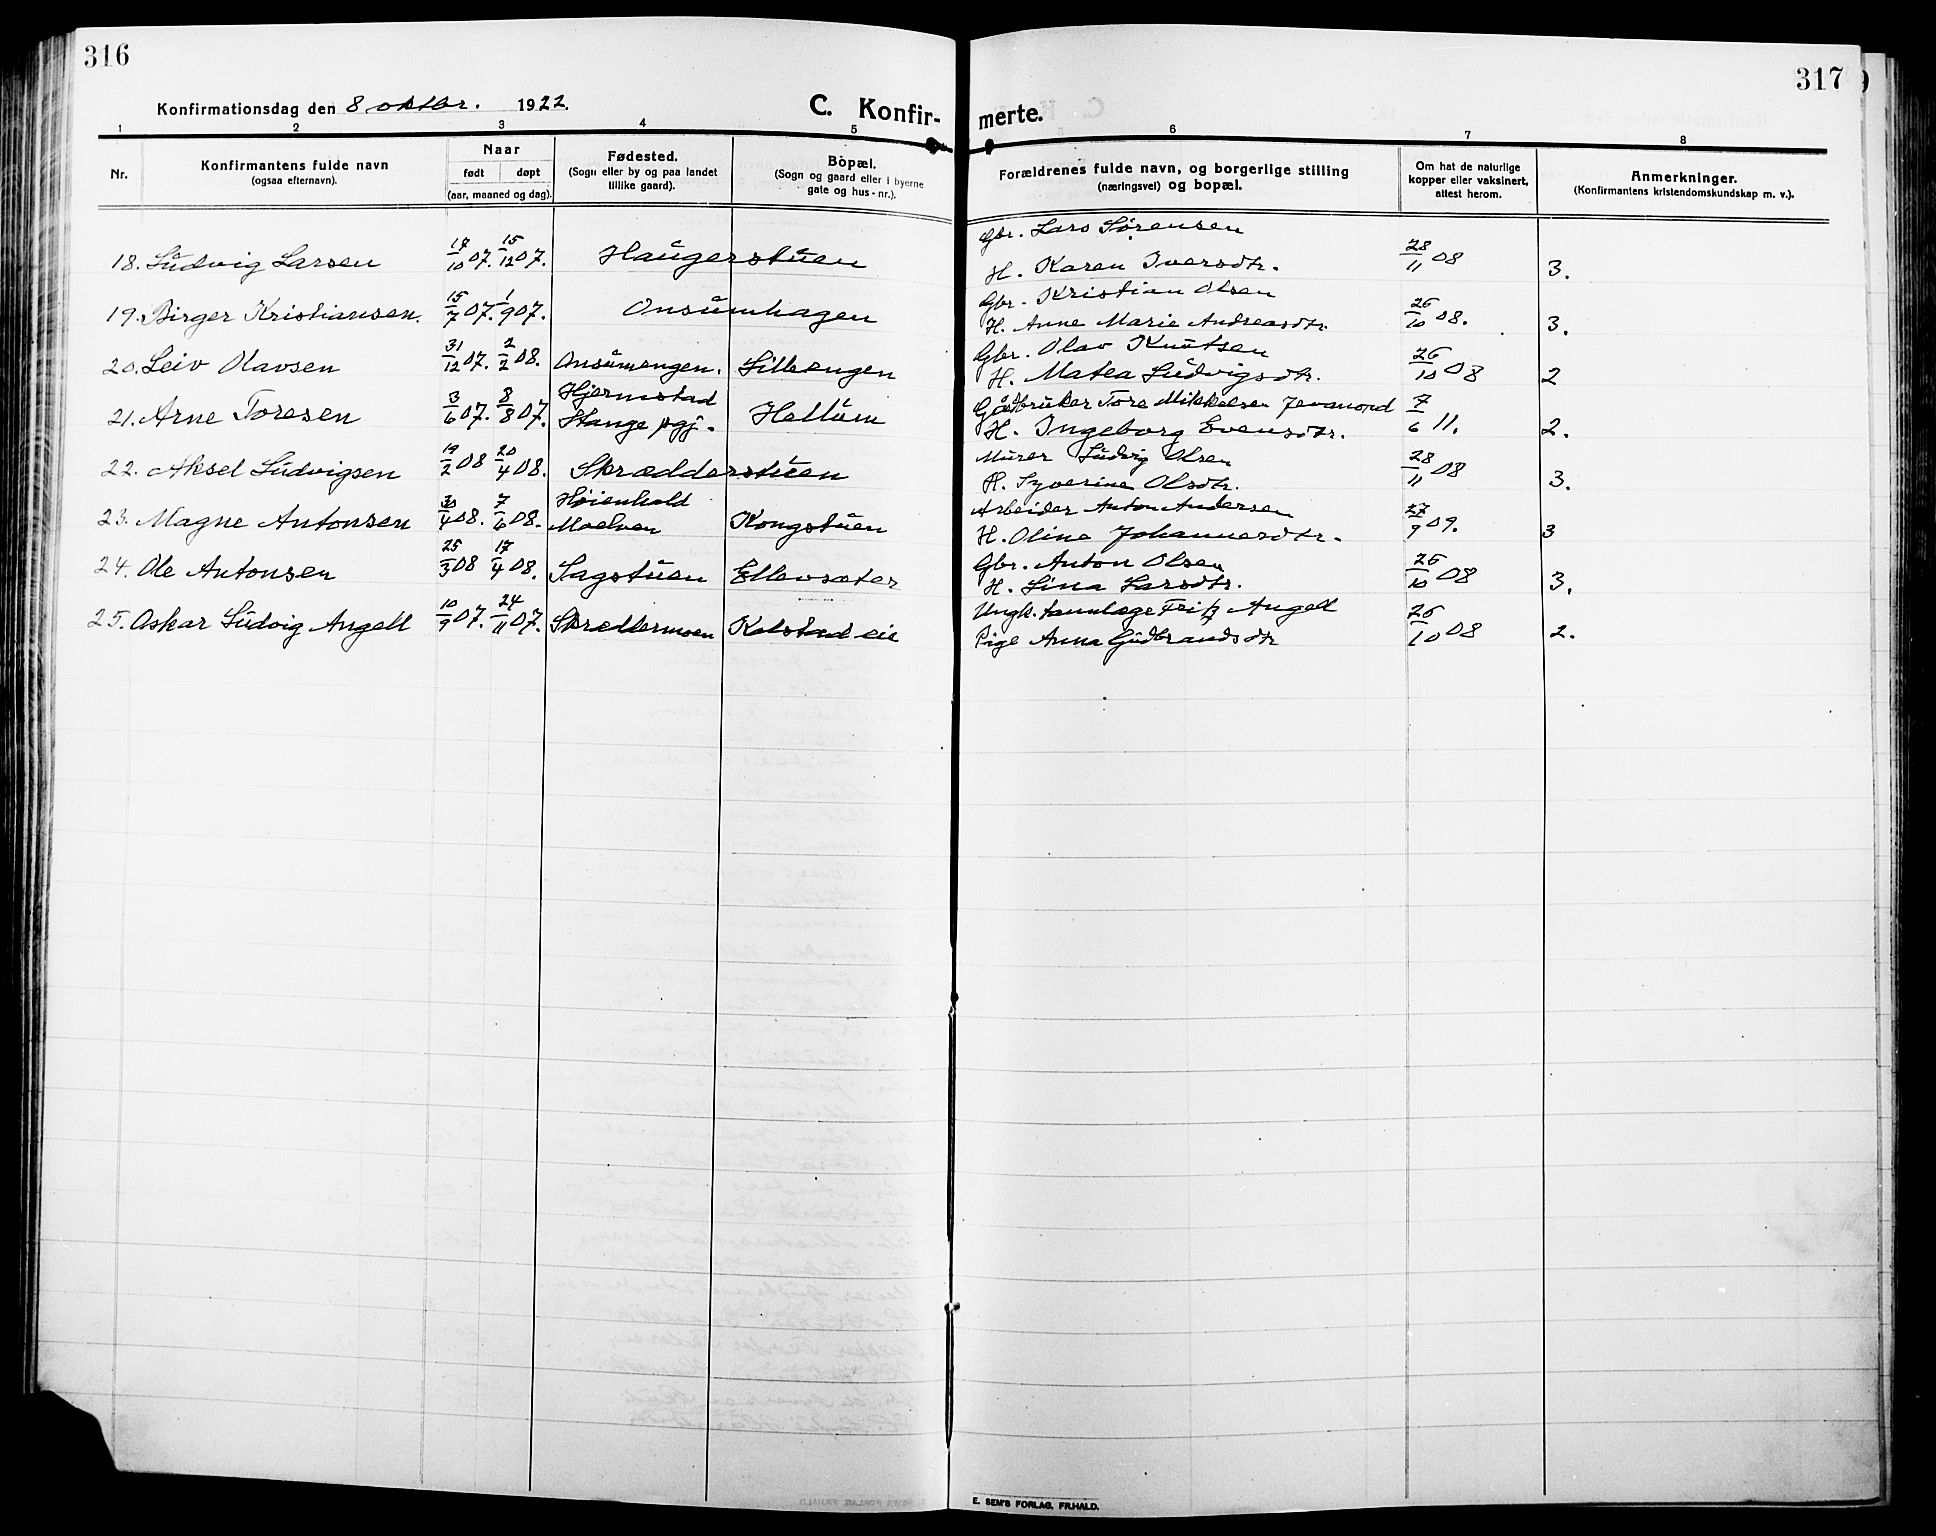 316
317
Konfirmationsdag den 8 oktbr. 1922.
C. Konfir-
merte.
1 2 3 4 5 6 7 8
Nr.
Konfirmantens fulde navn
(ogsaa efternavn).
Naar
født døpt
(aar, maaned og dag).
Fødested.
(Sogn eller by og paa landet
lillike gaard).
Bopæl.
(Sogn og gaard eller i byerne
gate og hus-nr.).
Forældrenes fulde navn, og borgerlige stilling
(næringsvei) og bopæl.
Om hat de naturlige
kopper eller vaksinert,
attest herom.
Anmerkninger.
(Konfirmantens kristendomskundskap m. v.).
Gbr. Lars Sørensen
18. Ludvig Larsen 17/10 07. 15/12 07. Haugerstuen H. Karen Iversdtr. 28/11 08 3.
Gbr. Kristian Olsen
19. Birger Kristiansen. 15/7 07. 1/9 07. Onsumhagen H. Anne Marie Andreasdtr. 26/10 08. 3.
Gbr. Olav Knutsen
20. Leiv Olavsen 31/12 07. 2/2 08. Onsumengen. Lilleengen H. Matea Ludvigsdtr. 26/10 08 2
Hjermstad Gårdbruker Tore Mikkelsen
21. Arne Toresen 3/6 07. 8/8 07. Stange pgj. Hellum H. Ingeborg Evensdtr. 7/6 11. 2.
Murer Ludvig Olsen
22. Aksel Ludvigsen 19/2 08 20/4 08. Skrædderstuen H. Syverine Olsdtr. 28/11 08 3.
Høienhald Arbeider Anton Andersen
23. Magne Antonsen 30/4 08. 7/6 08. Moelven Kongstuen H. Oline Johannesdtr. 27/9 09. 3
Gbr. Anton Olsen
24. Ole Antonsen 25/3 08 17/4 08. Sagstuen Ellevsæter H. Lina Larsdtr. 26/10 08 3.
Ungk. tannlæge Fritz Angell
25. Oskar Ludvig Angell 10/9 07. 24/11 07. Skrædlermoen Kolstad eie Pige Anna Gudbrandsdtr 26/10 08 2.
E. SEM'S FORLAG, FR.HALD.